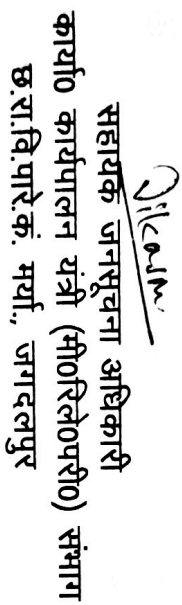 सहायक जनसूचना अधिकारी
कार्या0 कार्यपालन यंत्री (मी0रिले0परी0) संभाग
छ.रा.वि.पारे.कं. मर्या., जगदलपुर